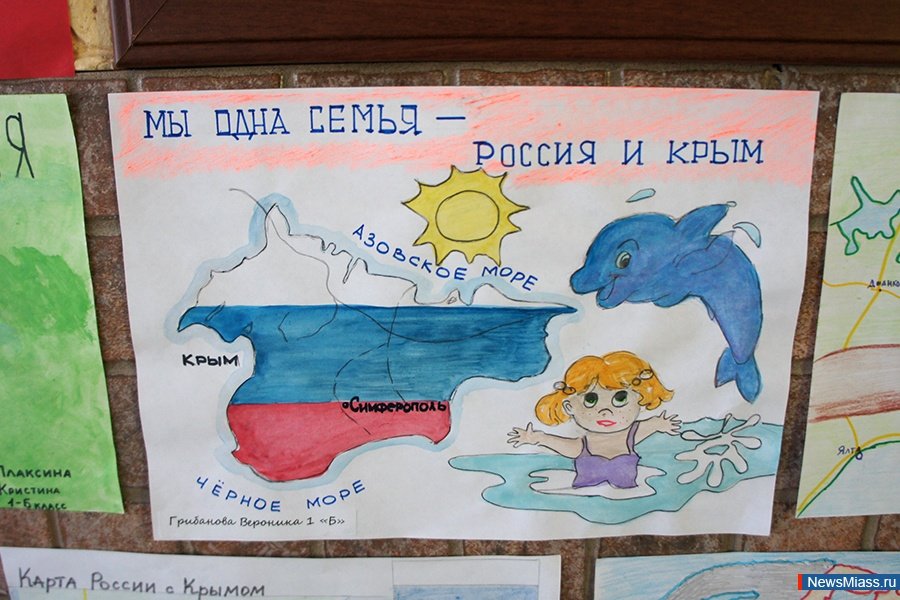 МЫ ОДНА СЕМЬЯ —
РОССИЯ И КРЫМ
АЗОВСКОЕ МОРЕ
КРЫМ
Симферополь
ЧЁРНОЕ МОРЕ
Грибанова Вероника 1 «Б»
Я
Плаксина
Кристина
1-Б класс
Джанко
Ялта
Карта России с Крымом
NewsMiass.ru